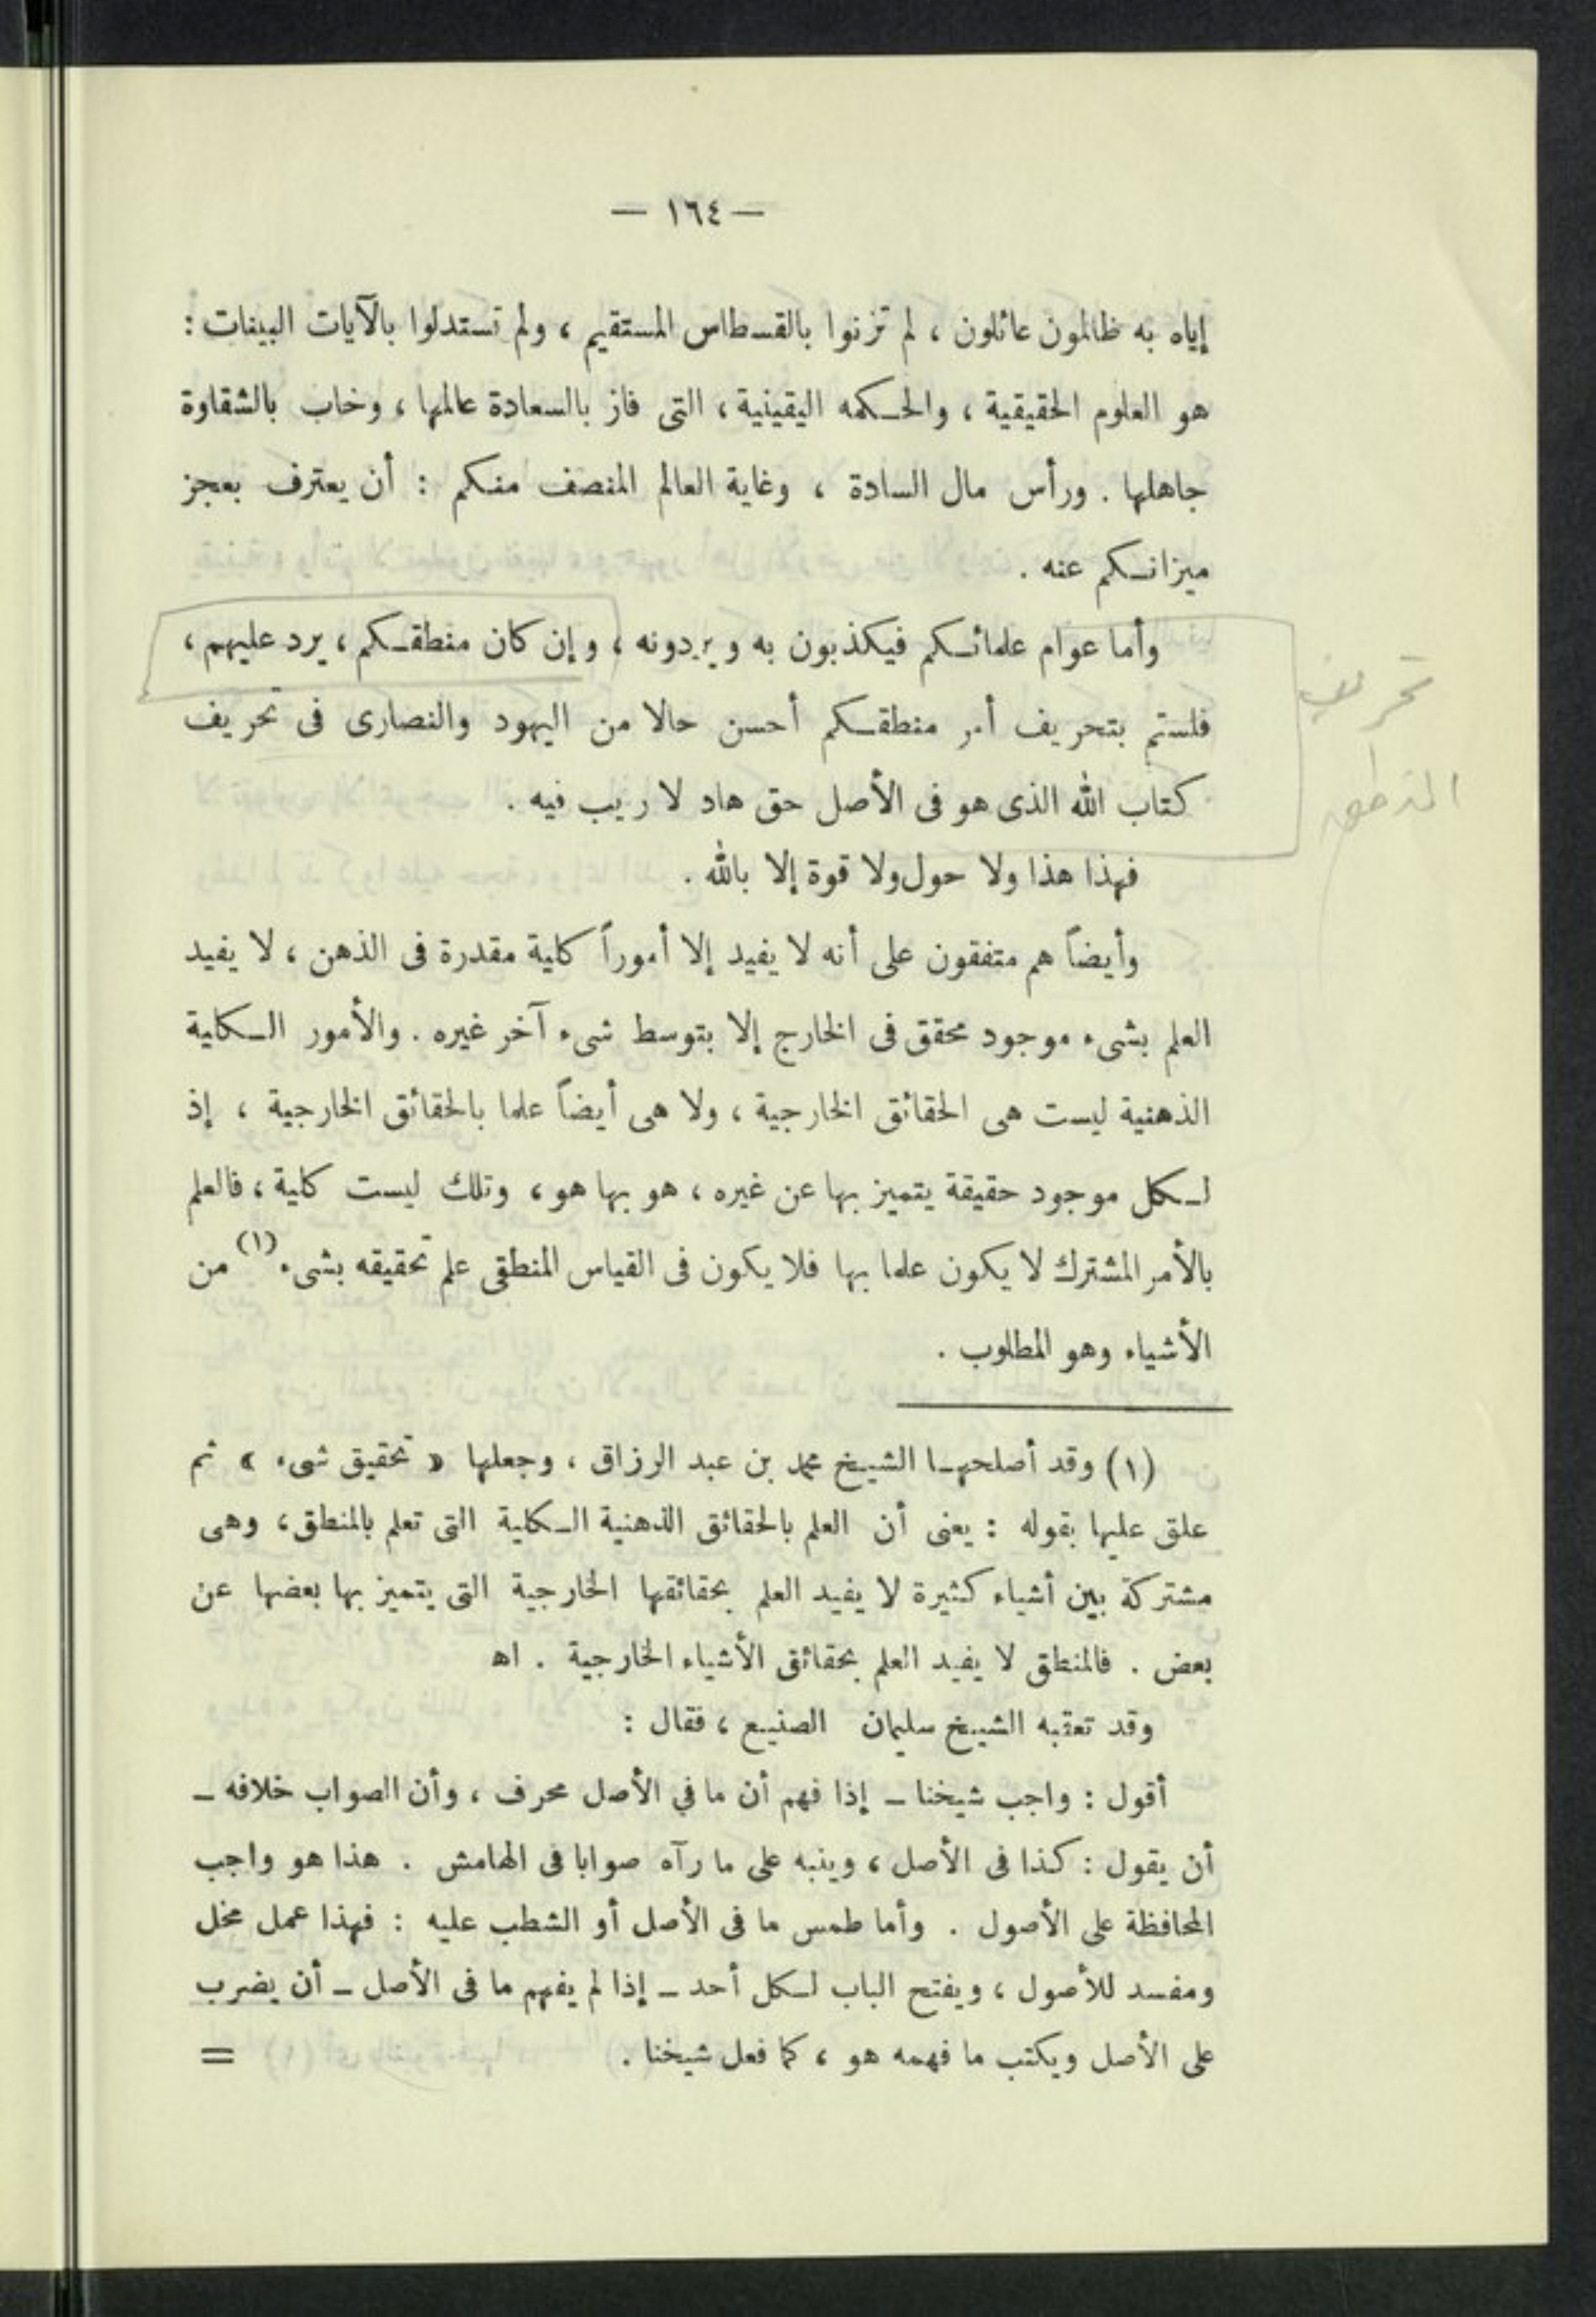 — ١٦٤ —
إياه به ظالمون عائلون ، لم تزنوا بالقسطاس المستقيم ، ولم تستدلوا بالآيات البينات :
هو العلوم الحقيقية ، والحكمه اليقينية ، التى فاز بالسعادة عالمها ، وخاب بالشقاوة
جاهلها . ورأس مال السادة ، وغاية العالم المنصف منكم : أن يعترف بعجز
ميزانكم عنه .
وأما عوام علمائكم فيكذبون به ويردونه ، وإن كان منطقكم ، يرد عليهم ،
فلستم بتحريف أمر منطقكم أحسن حالا من اليهود والنصارى فى تحريف
كتاب الله الذى هو فى الأصل حق هاد لا ريب فيه .
تحريف
المنطق
فهذا هذا ولا حول ولا قوة إلا بالله .
وأيضاً هم متفقون على أنه لا يفيد إلا أموراً كلية مقدرة فى الذهن ، لا يفيد
العلم بشىء موجود محقق فى الخارج إلا بتوسط شىء آخر غيره . والأمور الكلية
الذهنية ليست هى الحقائق الخارجية ، ولا هى أيضاً علما بالحقائق الخارجية ، إذ
لكل موجود حقيقة يتميز بها عن غيره ، هو بها هو ، وتلك ليست كلية ، فالعلم
بالأمر المشترك لا يكون علما بها فلا يكون فى القياس المنطقى علم تحقيقه بشىء (١) من
الأشياء وهو المطلوب .
(١) وقد أصلحها الشيخ محمد بن عبد الرزاق ، وجعلها « تحقيق شىء » ثم
علق عليها بقوله : يعنى أن العلم بالحقائق الذهنية الكلية التى تعلم بالمنطق ، وهى
مشتركة بين أشياء كثيرة لا يفيد العلم بحقائقها الخارجية التى يتميز بها بعضها عن
بعض . فالمنطق لا يفيد العلم بحقائق الأشياء الخارجية . اهـ
وقد تعقبه الشيخ سليمان الصنيع ، فقال :
أقول : واجب شيخنا – إذا فهم أن ما في الأصل محرف ، وأن الصواب خلافه –
أن يقول : كذا فى الأصل ، وينبه على ما رآه صوابا فى الهامش . هذا هو واجب
المحافظة على الأصول . وأما طمس ما فى الأصل أو الشطب عليه : فهذا عمل مخل
ومفسد للأصول ، ويفتح الباب لكل أحد – إذا لم يفهم ما فى الأصل – أن يضرب
على الأصل ويكتب ما فهمه هو ، كما فعل شيخنا . =